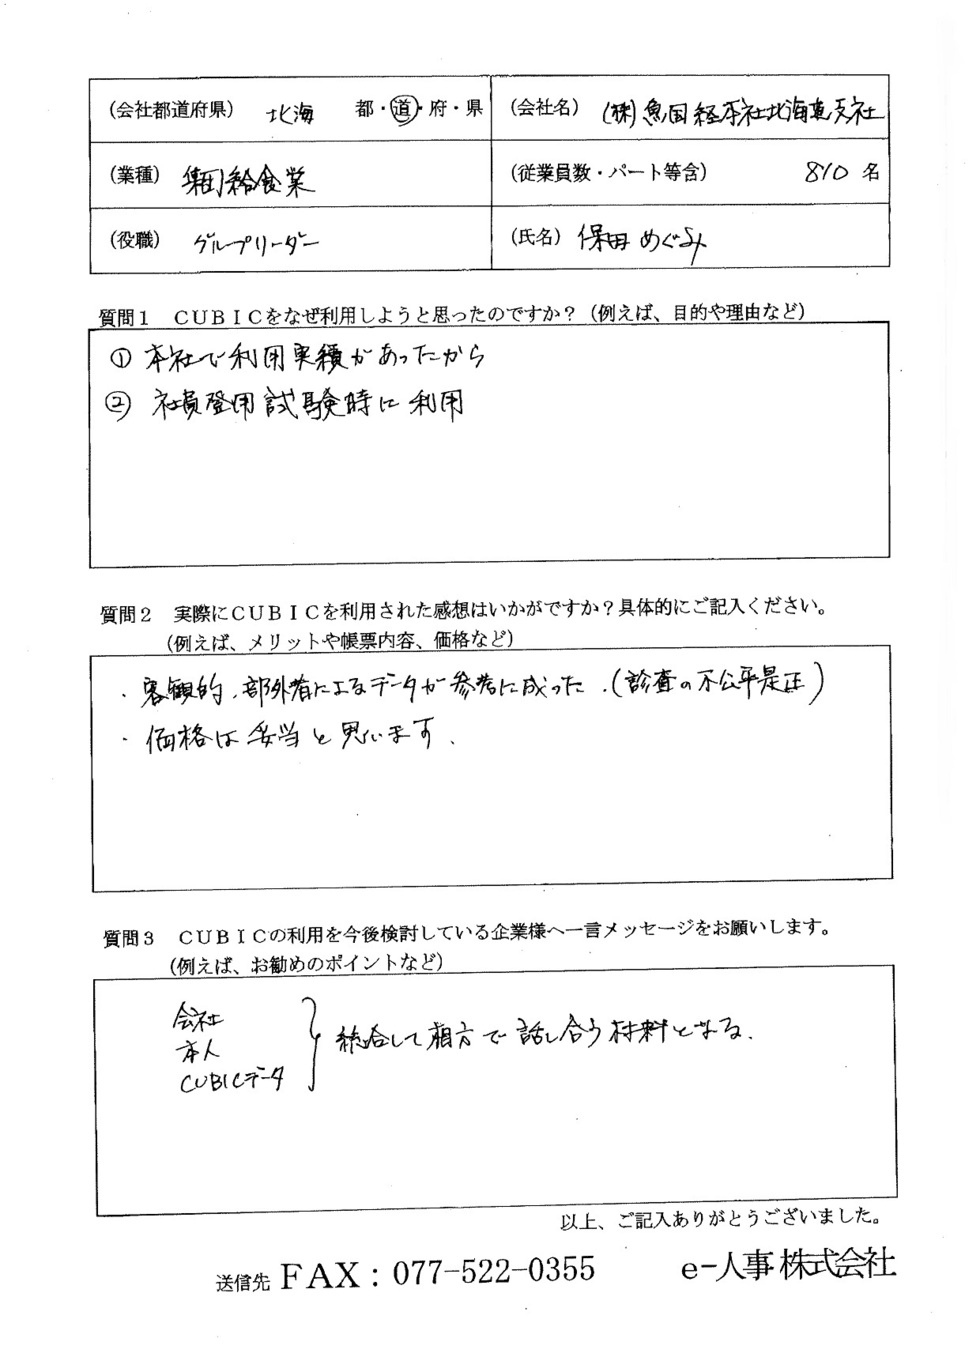 (会社都道府県) 北海 都・道・府・県
(会社名) (株)魚国総本社北海道支社
(業種) 集団給食業
(従業員数・パート等含) 810 名
(役職) グループリーダー
(氏名) 保田 めぐみ
質問1 CUBICをなぜ利用しようと思ったのですか？(例えば、目的や理由など)
① 本社で利用実績があったから
② 社員登用試験時に利用
質問2 実際にCUBICを利用された感想はいかがですか？具体的にご記入ください。
(例えば、メリットや帳票内容、価格など)
・客観的、部外者によるデータが参考に成った.(診査の不公平是正)
・価格は妥当と思います.
質問3 CUBICの利用を今後検討している企業様へ一言メッセージをお願いします。
(例えば、お勧めのポイントなど)
会社
本人
CUBICデータ
総合して相方で話し合う材料となる.
以上、ご記入ありがとうございました。
送信先 FAX：077-522-0355 e-人事株式会社